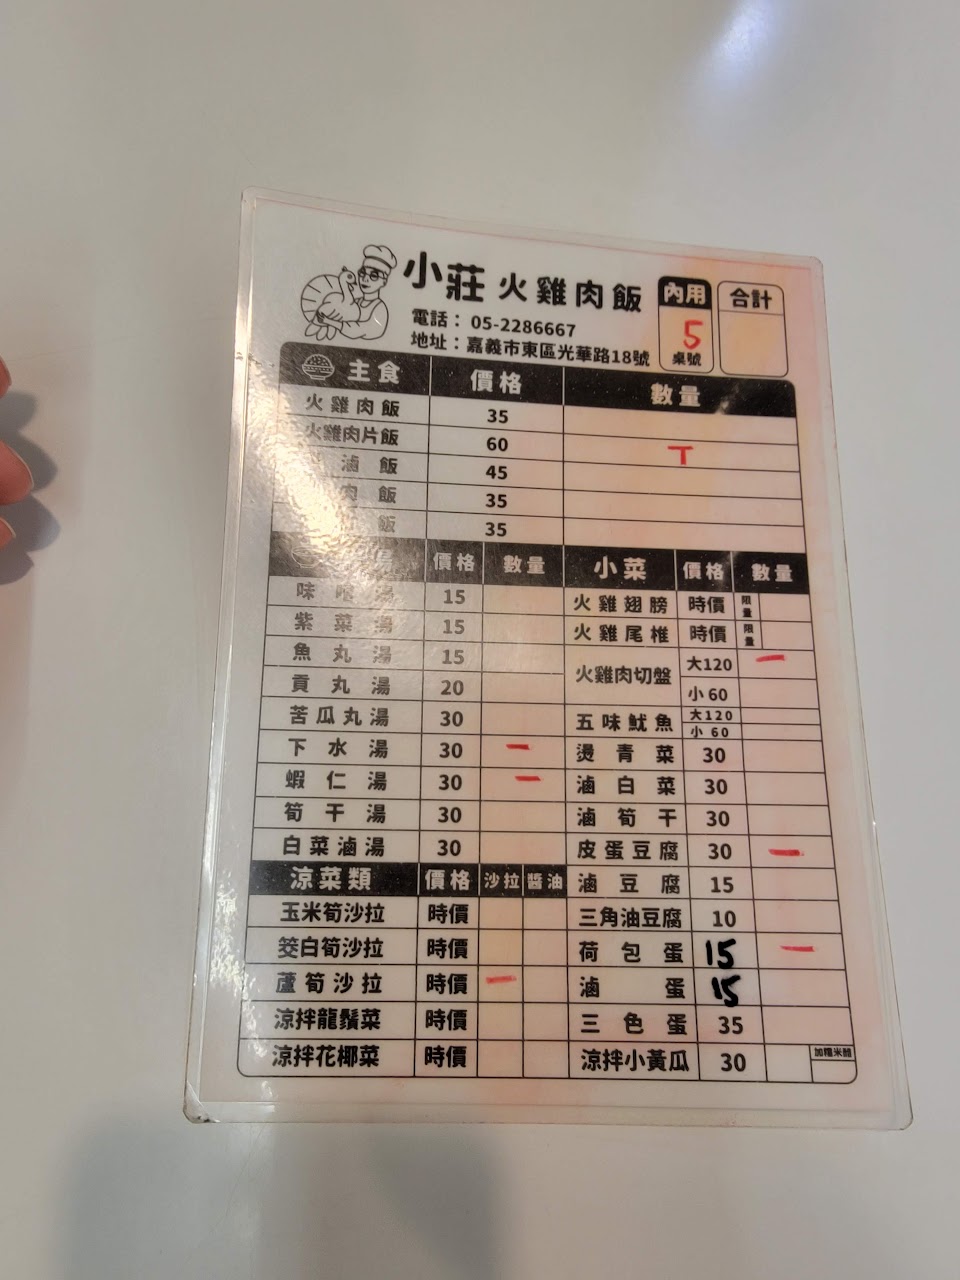 小莊 火雞肉飯
電話： 05-2286667
地址：嘉義市東區光華路18號
內用
5
桌號
合計
主食 價格 數量
火雞肉飯 35
火雞肉片飯 60 T
滷飯 45
肉飯 35
飯 35
湯 價格 數量
味噌湯 15
紫菜湯 15
魚丸湯 15
貢丸湯 20
苦瓜丸湯 30
下水湯 30 一
蝦仁湯 30 一
筍干湯 30
白菜滷湯 30
涼菜類 價格 沙拉 醬油
玉米筍沙拉 時價
筊白筍沙拉 時價
蘆筍沙拉 時價 一
涼拌龍鬚菜 時價
涼拌花椰菜 時價
小菜 價格 數量
火雞翅膀 時價 限量
火雞尾椎 時價 限量
火雞肉切盤 大120 一
小60
五味魷魚 大120
小 60
燙青菜 30
滷白菜 30
滷筍干 30
皮蛋豆腐 30 一
滷豆腐 15
三角油豆腐 10
荷包蛋 15 一
滷蛋 15
三色蛋 35
涼拌小黃瓜 30 加糯米醋